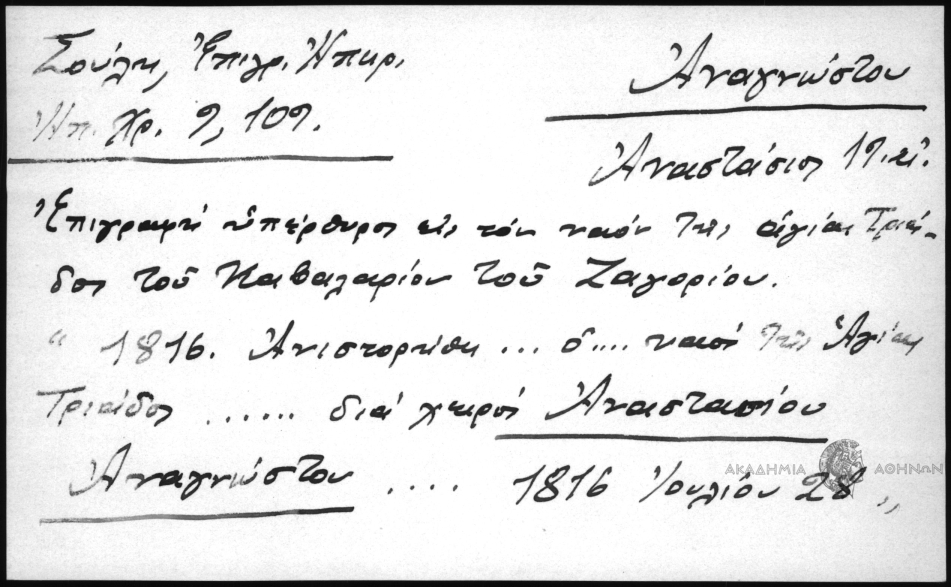 Σούλη, Ἐπιγρ. Ἠπειρ.
Ἠπ. Χρ. 9, 109.
Ἀναγνώστου
Ἀναστάσιος 19. αἰ.
Ἐπιγραφή ὑπέρθυρος εἰς τόν ναόν τῆς ἁγίας Τριά-
δος τοῦ Καβαλαρίου τοῦ Ζαγορίου.
“ 1816. Ἀνιστορήθη ... ὁ .... ναός τῆς Ἁγίας
Τριάδος ...... διά χειρός Ἀναστασίου
Ἀναγνώστου .... 1816 Ἰουλίου 28 „
ΑΚΑΔΗΜΙΑ ΑΘΗΝΩΝ